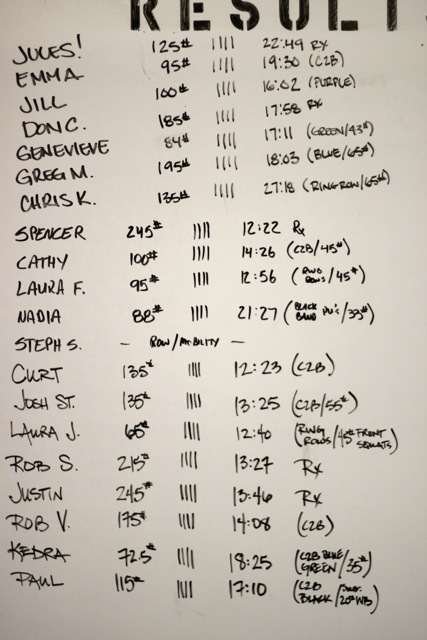 RESULT
JULES! 125# |||| 22:49 RX
EMMA 95# |||| 19:30 (C2B)
JILL 100# ||| 16:02 (PURPLE)
DON C. 185# |||| 17:58 RX
GENEVIEVE 84# |||| 17:11 (GREEN/43#)
GREG M. 195# |||| 18:03 (BLUE/65#)
CHRIS K. 135# |||| 27:18 (RING ROW/65#)
SPENCER 245# |||| 12:22 Rx
CATHY 100# |||| 14:26 (C2B/45#)
LAURA F. 95# |||| 12:56 (RING ROWS/45#)
NADIA 88# |||| 21:27 (BLACK BAND /33#)
STEPH S. — ROW/MOBILITY —
CURT 135# |||| 12:23 (C2B)
JOSH ST. 135# |||| 13:25 (C2B/55#)
LAURA J. 65# |||| 12:40 (RING ROWS/45# FRONT SQUATS)
ROB S. 215# |||| 13:27 Rx
JUSTIN 245# |||| 13:46 Rx
ROB V. 175# |||| 14:08 (C2B)
KEDRA 72.5# |||| 18:25 (C2B BLUE/GREEN/35#)
PAUL 115# |||| 17:10 (C2B BLACK/ 20# WB)